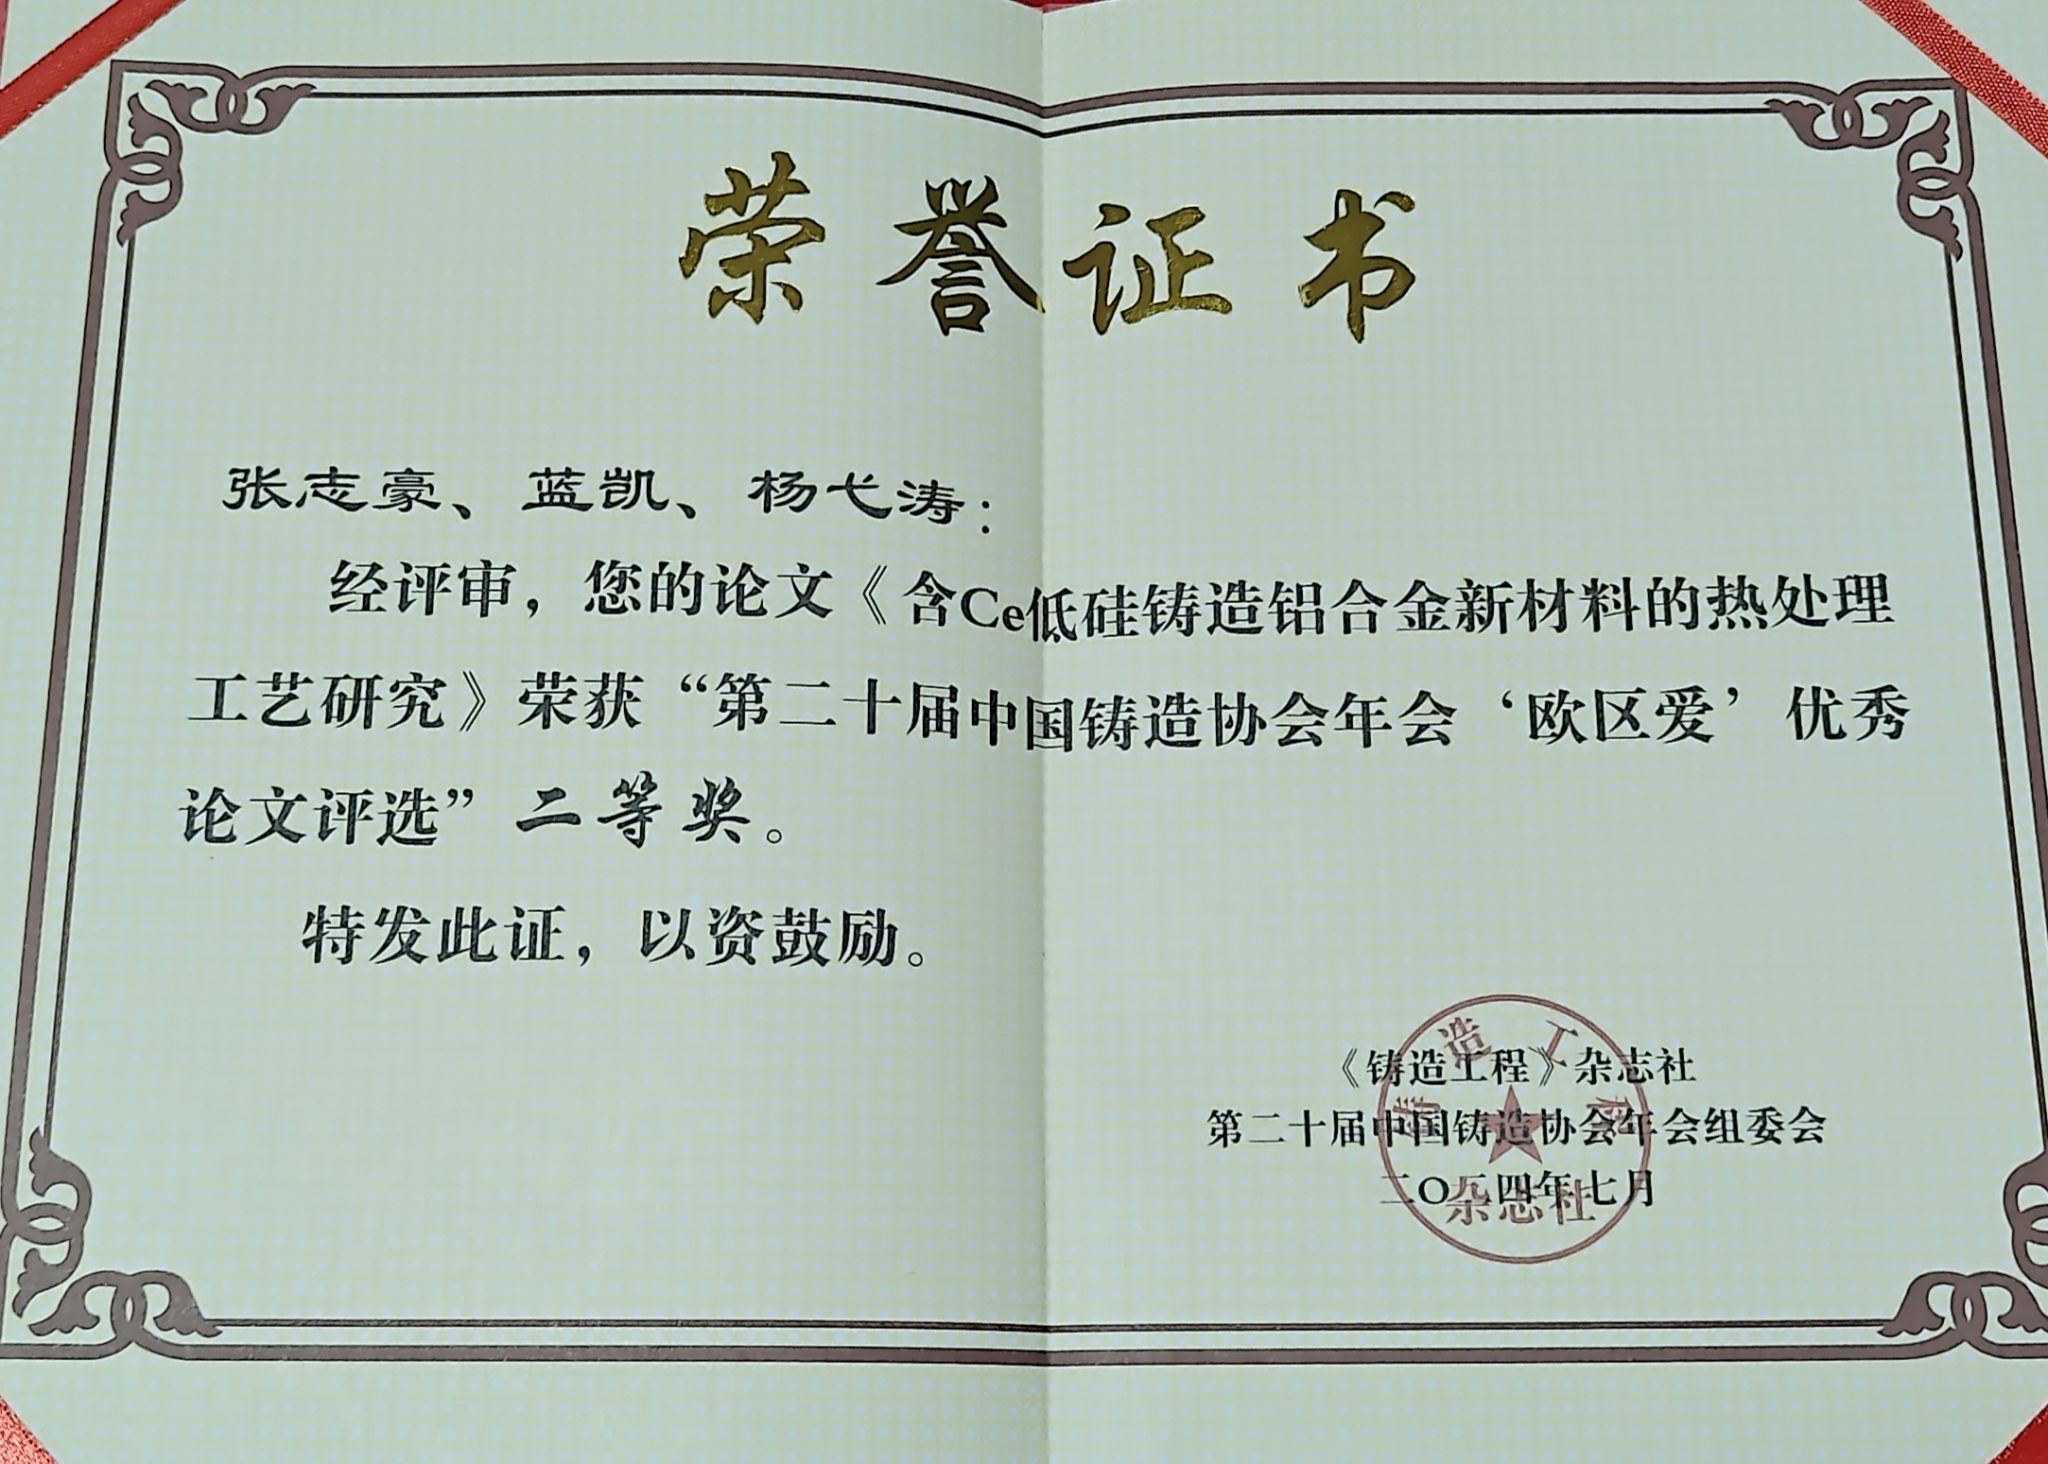 荣誉证书
张志豪、蓝凯、杨弋涛：
经评审，您的论文《含Ce低硅铸造铝合金新材料的热处理
工艺研究》荣获“第二十届中国铸造协会年会‘欧区爱’优秀
论文评选”二等奖。
特发此证，以资鼓励。
《铸造工程》杂志社
第二十届中国铸造协会年会组委会
二〇二四年七月
铸造工程
杂志社